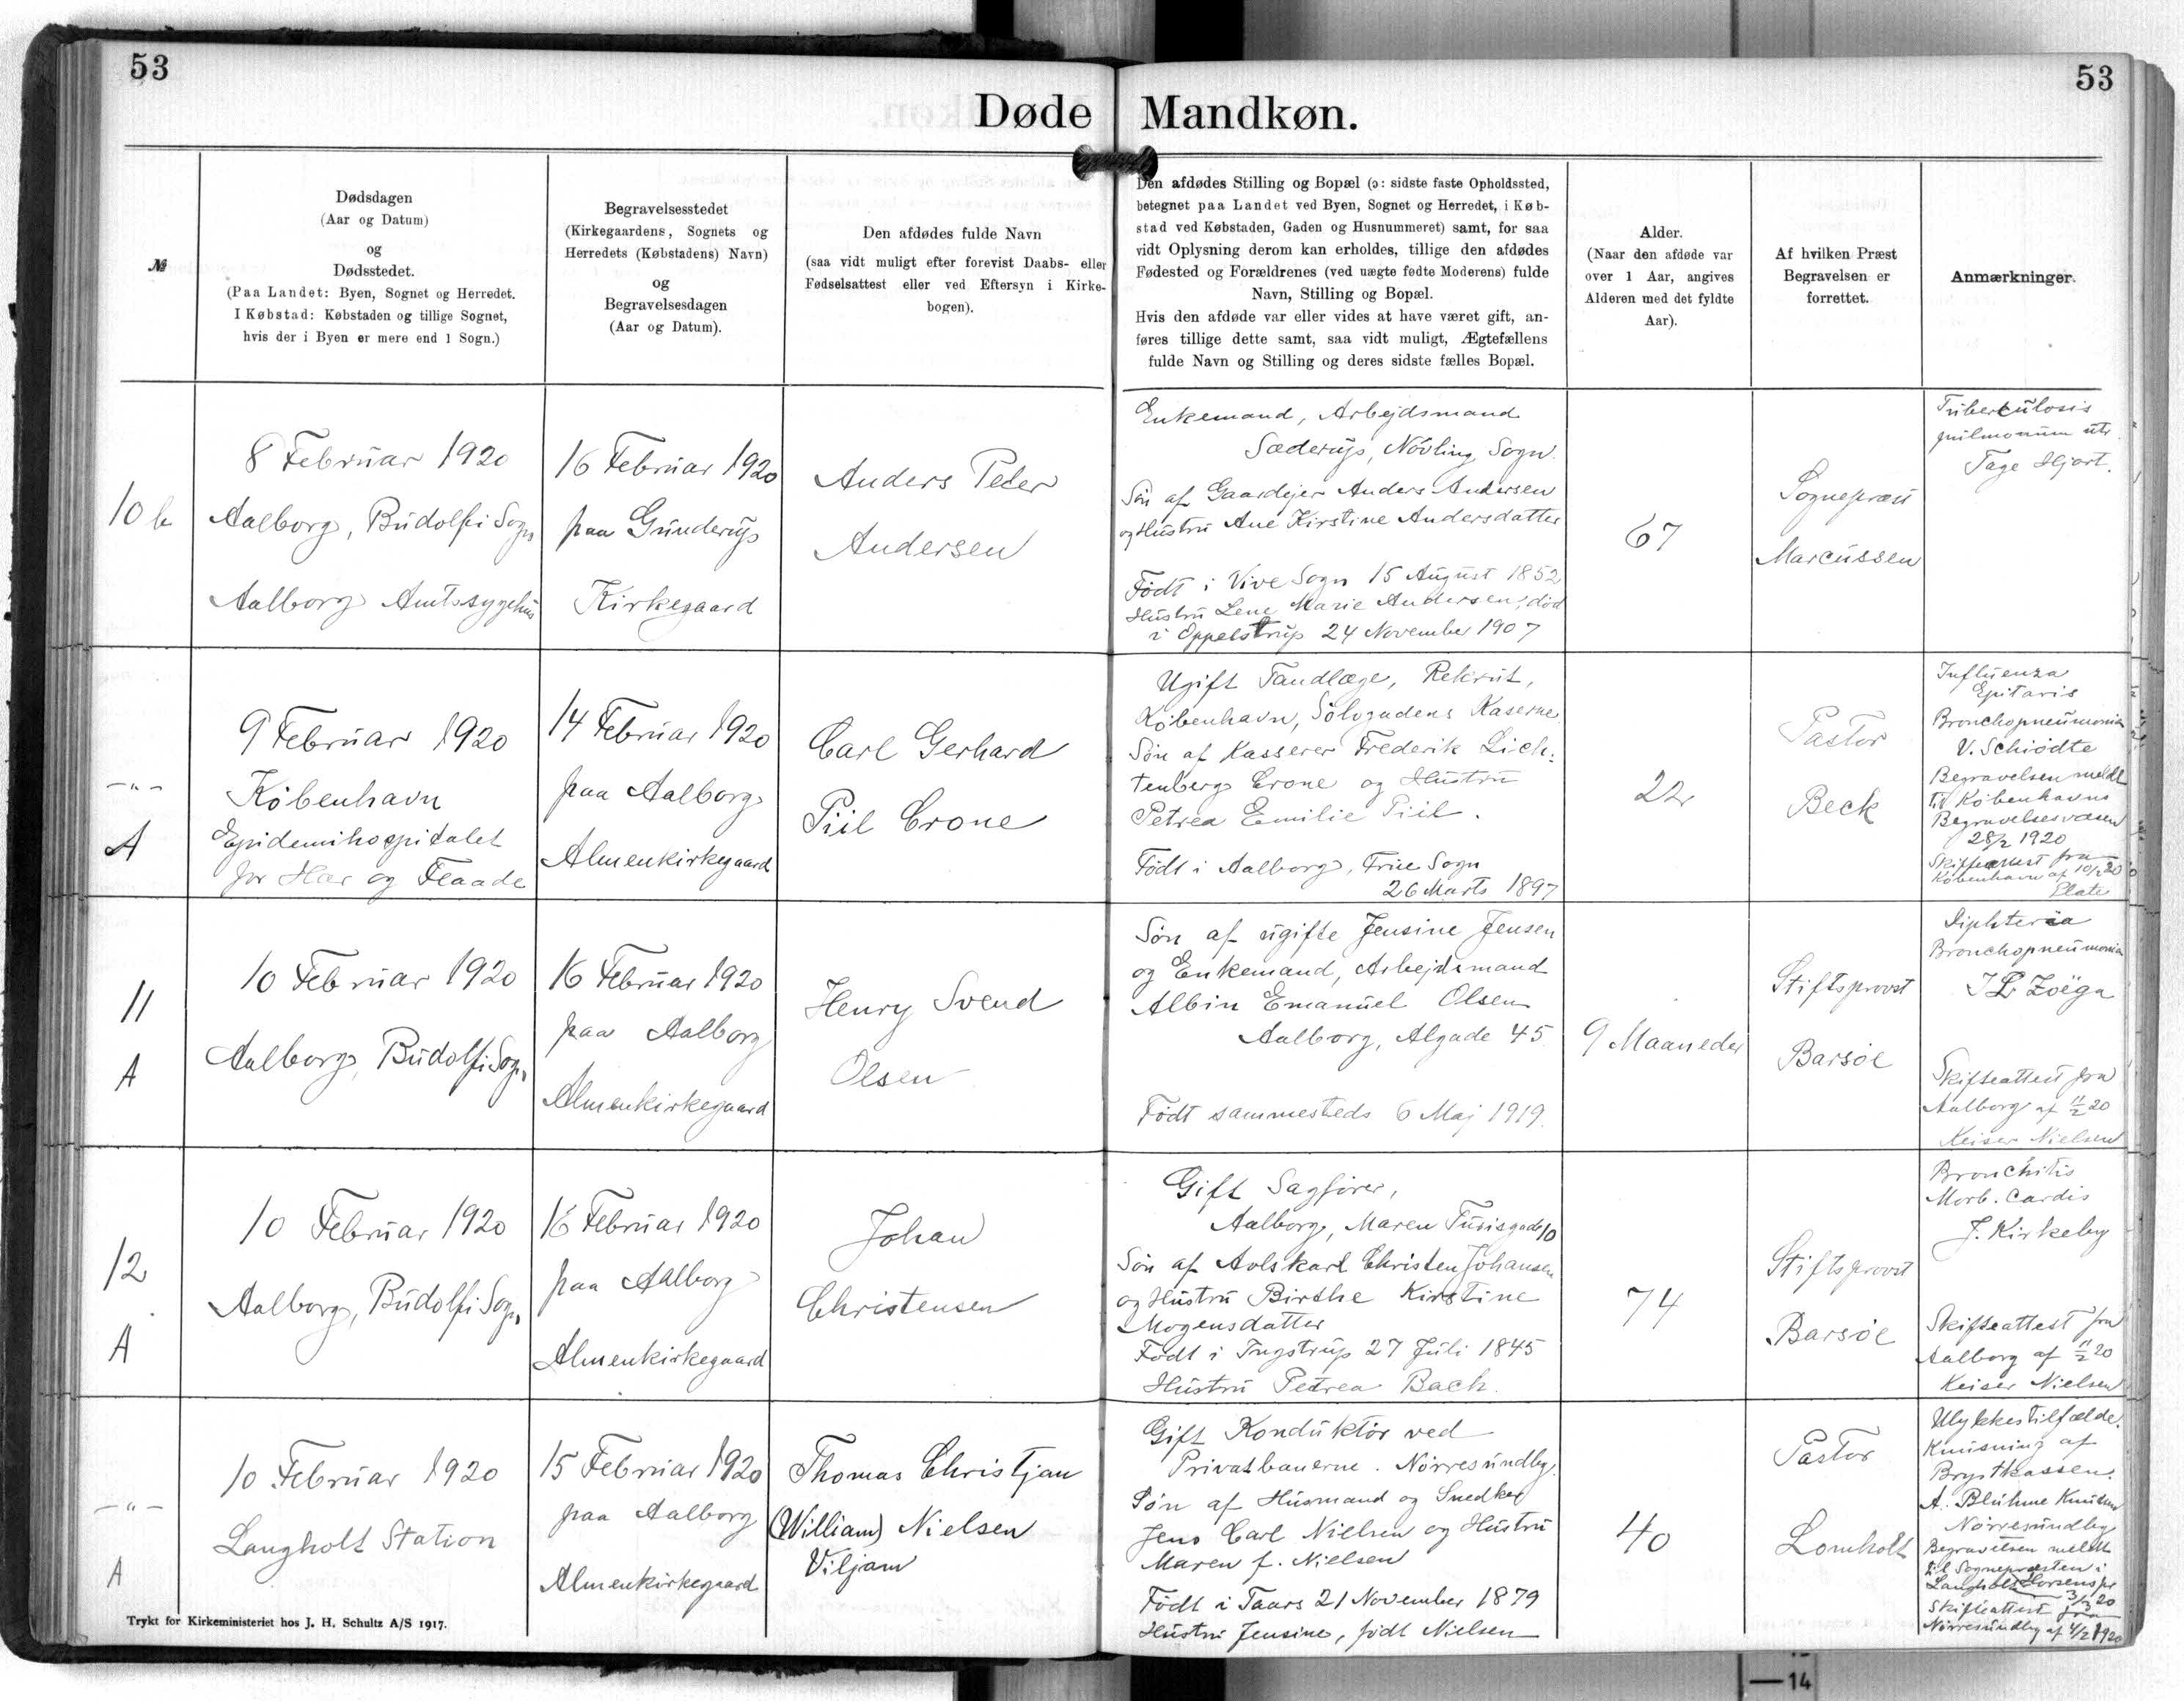 53
53
Døde Mandkøn.
№
Dødsdagen
(Aar og Datum)
og
Dødsstedet.
(Paa Landet: Byen, Sognet og Herredet.
I Købstad: Købstaden og tillige Sognet,
hvis der i Byen er mere end 1 Sogn.)
Begravelsesstedet
(Kirkegaardens, Sognets og
Herredets (Købstadens) Navn)
og
Begravelsesdagen
(Aar og Datum).
Den afdødes fulde Navn
(saa vidt muligt efter forevist Daabs- eller
Fødselsattest eller ved Eftersyn i Kirke-
bogen).
Den afdødes Stilling og Bopæl (ɔ: sidste faste Opholdssted,
betegnet paa Landet ved Byen, Sognet og Herredet, i Køb-
stad ved Købstaden, Gaden og Husnummeret) samt, for saa
vidt Oplysning derom kan erholdes, tillige den afdødes
Fødested og Forældrenes (ved uægte fødte Moderens) fulde
Navn, Stilling og Bopæl.
Hvis den afdøde var eller vides at have været gift, an-
føres tillige dette samt, saa vidt muligt, Ægtefællens
fulde Navn og Stilling og deres sidste fælles Bopæl.
Alder.
(Naar den afdøde var
over 1 Aar, angives
Alderen med det fyldte
Aar).
Af hvilken Præst
Begravelsen er
forrettet.
Anmærkninger.
10 b
8 Februar 1920
Aalborg, Budolfi Sogn
Aalborg Amtssygehus
16 Februar 1920
paa Gunderup
Kirkegaard
Anders Peter
Andersen
Enkemand, Arbejdsmand
Sæderup, Nøvling Sogn.
Søn af Gaardejer Anders Andersen
og Hustru Ane Kirstine Andersdatter
Født i Vive Sogn 15 August 1852
Hustru Lene Marie Andersen, død
i Oppelstrup 24 November 1907
67
Sognepræst
Marcussen
Tuberculosis
pulmonum utr.
Tage Hjort.
-"-
A
9 Februar 1920
København
Epidemihospitalet
for Hær og Flaade
14 Februar 1920
paa Aalborg
Almenkirkegaard
Carl Gerhard
Piil Crone
Ugift Tandlæge, Rekrut,
København, Sølvgadens Kaserne.
Søn af Kasserer Frederik Lich-
tenberg Crone og Hustru
Petrea Emilie Piil.
Født i Aalborg, Frue Sogn
26 Marts 1897
22
Pastor
Beck
Influenza
Bronchopneumonia
V. Schiødte
Begravelsen meldt
til Københavns
Begravelsesvæsen
28/2 1920
Skifteattest fra
København af 10/2 20
11
A
10 Februar 1920
Aalborg, Budolfi Sogn
16 Februar 1920
paa Aalborg
Almenkirkegaard
Henry Svend
Olsen
Søn af ugifte Jensine Jensen
og Enkemand, Arbejdsmand
Albin Emanuel Olsen
Aalborg, Algade 45
Født sammesteds 6 Maj 1919.
9 Maaneder
Stiftsprovst
Barsøe
Diphteria
Bronchopneumonia
Zöega
Skifteattest fra
Aalborg af 11/2 20
Keiser Nielsen
12
A
10 Februar 1920
Aalborg, Budolfi Sogn
16 Februar 1920
paa Aalborg
Almenkirkegaard
Johan
Christensen
Gift Sagfører,
Aalborg, Maren Turisgade 10
Søn af Avlskarl Christen Johansen
og Hustru Birthe Kirstine
Mogensdatter
Født i Ingstrup 27 Juli 1845
Hustru Petrea Bach.
74
Stiftsprovst
Barsøe
Bronchitis
Morb. Cardis
J. Kirkeby
Skifteattest fra
Aalborg af 11/2 20
Keiser Nielsen
-"-
A
10 Februar 1920
Langholt Station
15 Februar 1920
paa Aalborg
Almenkirkegaard
Thomas Christjan
(William) Nielsen
Viljam
Gift Konduktør ved
Privatbanerne. Nørresundby.
Søn af Husmand og Snedker
Jens Carl Nielsen og Hustru
Maren f. Nielsen
Født i Taars 21 November 1879
Hustru Jensine, født Nielsen
40
Pastor
Lomholt
Ulykkestilfælde.
Knusning af
Brystkassen.
A. Bluhme Knutsen
Nørresundby
Begravelsen meldt
til Sognepræsten i
3/3 20
Skifteattest fra
Nørresundby af
Trykt for Kirkeministeriet hos J. H. Schultz A/S 1917.
—14